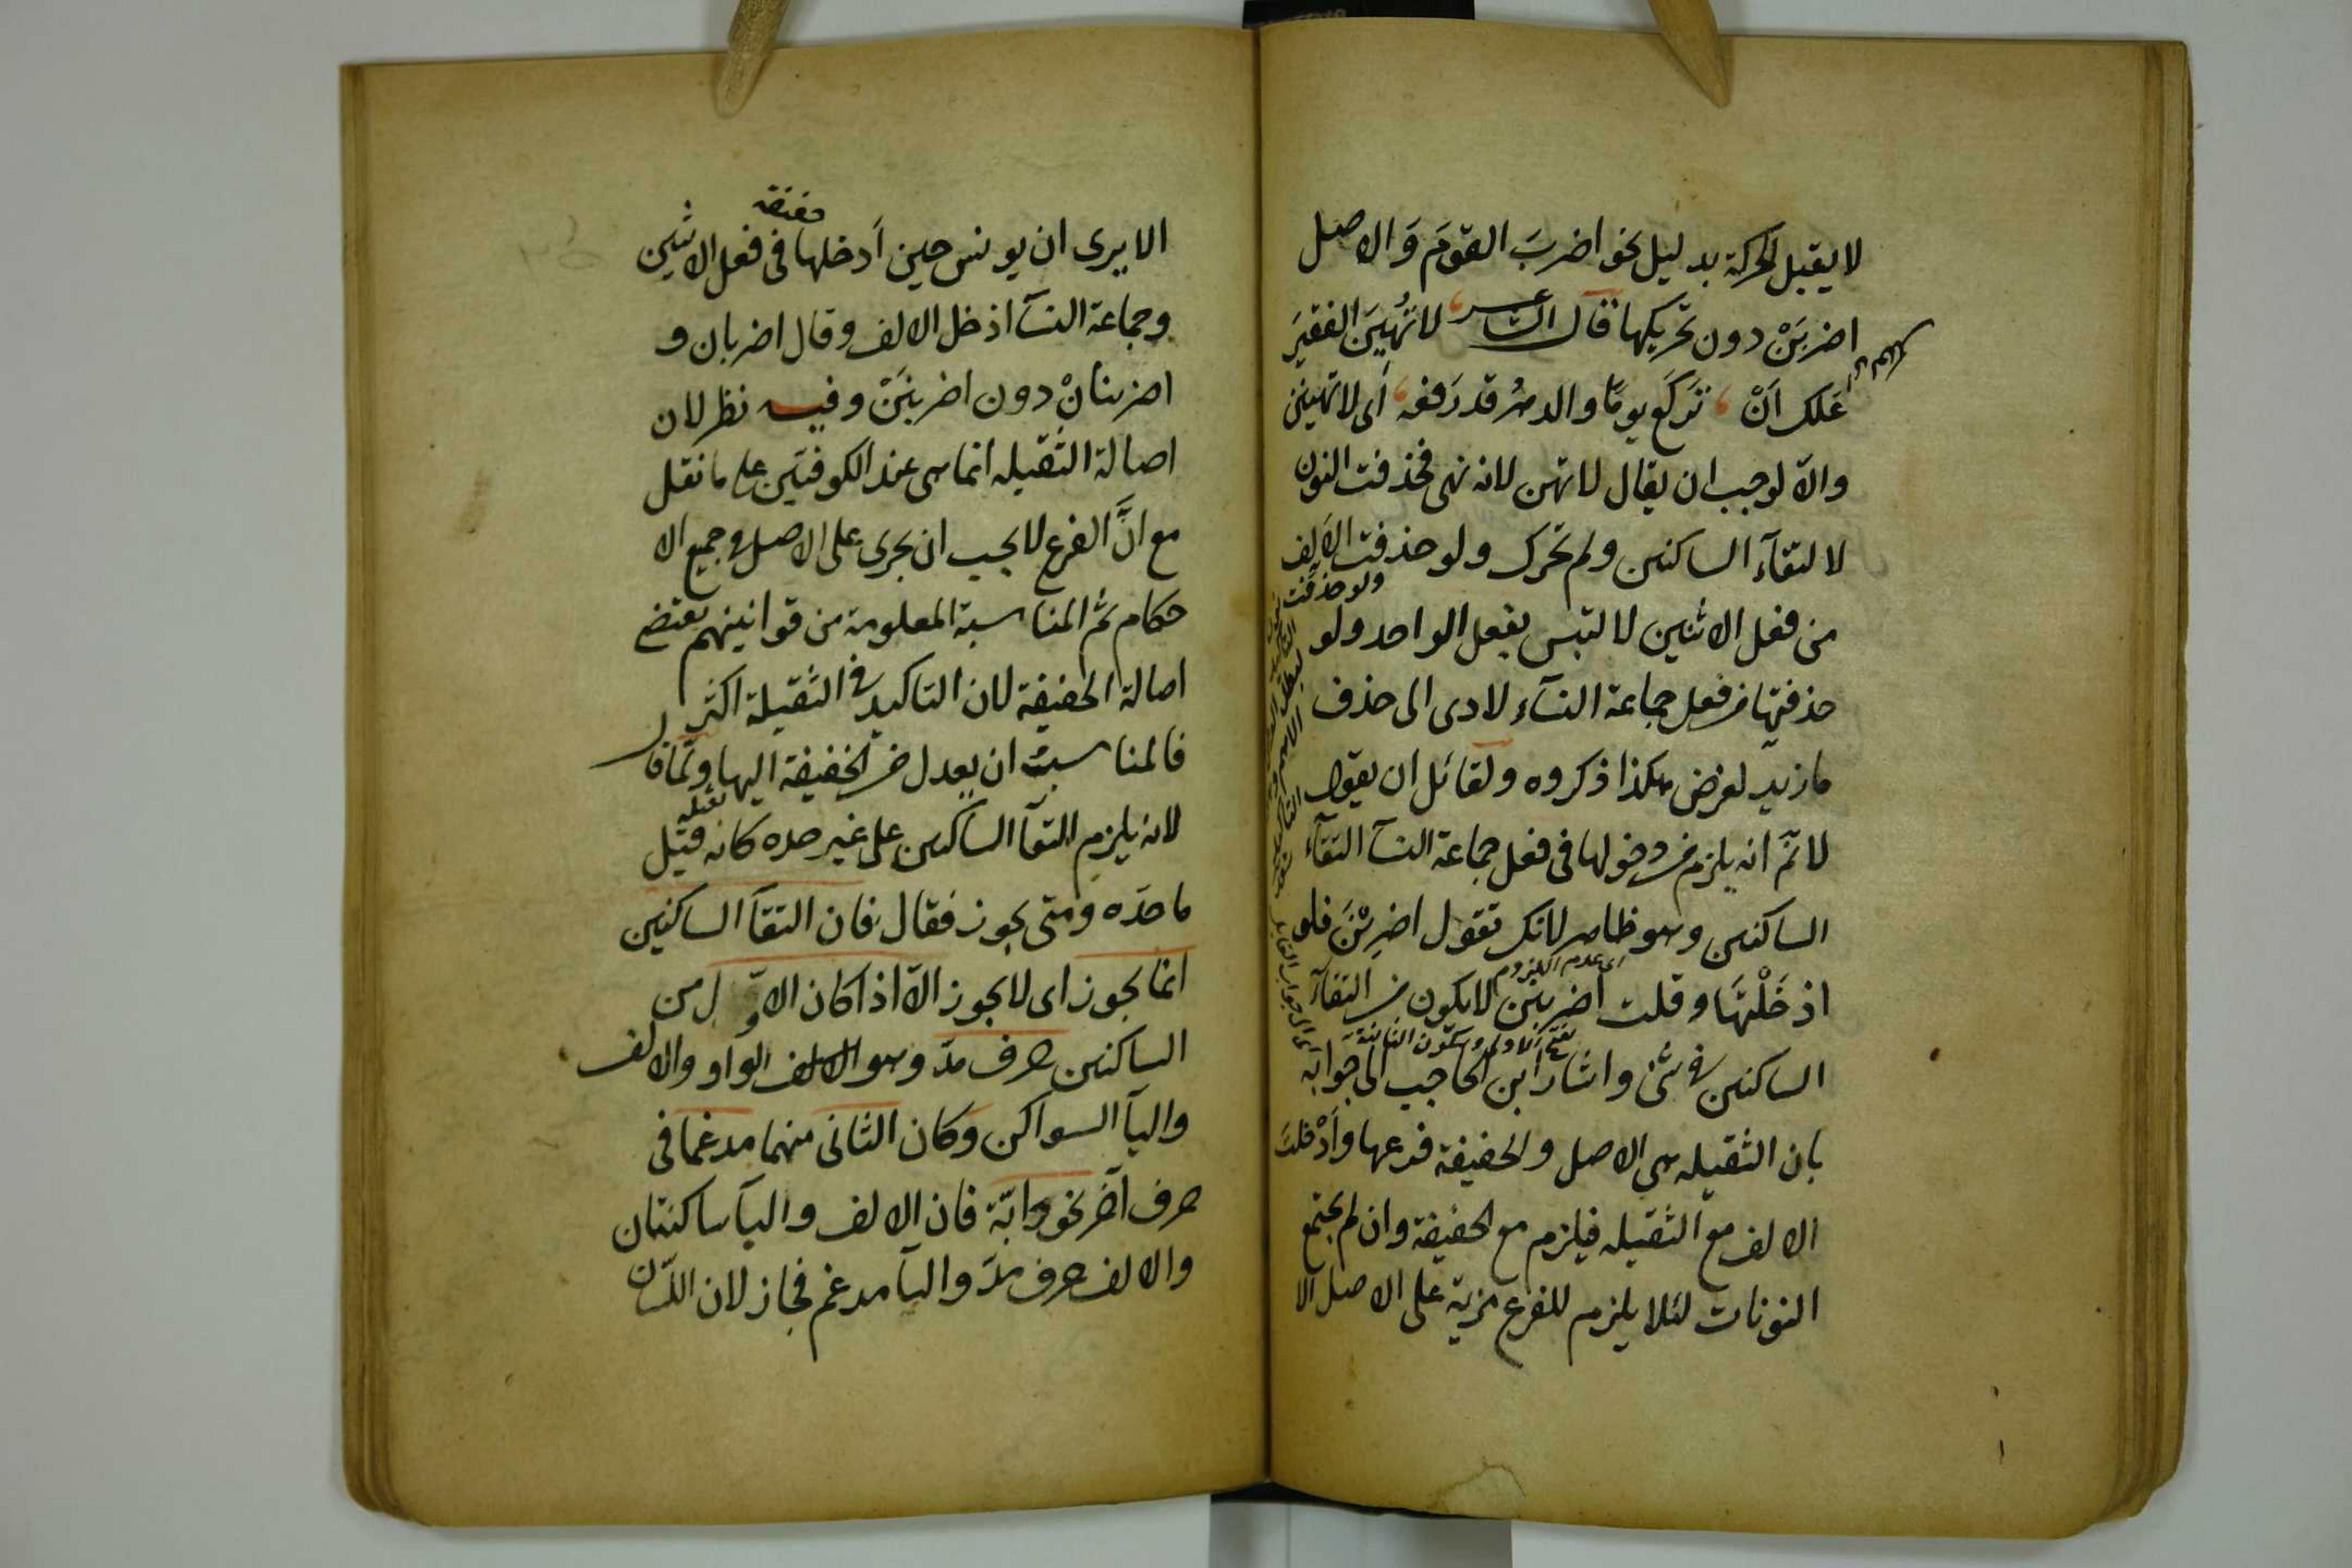 لا يقبل الحركة بدليل نحو اضربَ القومَ وَالاصل
اضربَنْ دون تحريكها قال الشاعر لا تُهِينَ الفقيرَ
عَلك اَنْ تَركَع يومًا والدهرُ قد رَفعه اَى لا تهينن
والاّ لوجب ان يقال لا تهن لانه نهى فحذفت النون
لالتقآء الساكنين ولم تحرك ولو حذفت الاَلِف
ولو حذفت
من فعل الاثنين لالتبس بفعل الواحد ولو
حذفتها من فعل جماعة النسآء لادى الى حذف
ما زيد لغرض هكذا ذكروه ولقائل ان يقول
لا نمّ انه يلزم من دخولها فى فعل جماعة النسآ التقآء
الساكنين وهو ظاهر لانك تقول اضرِبْنَ فلو
اى عدم اللزوم
ادخَلْتَها وقلت اضربنن لا يكون من التقآء
بفتح الاولى وسكون الثانية
الساكنين فى شئ واشار ابن الحاجب الى جوابه
بان الثقيله هى الاصل والخفيفة فرعها وادْخلت
الالف مع الثقيله فيلزم مع الخفيفة وان لم يجتمع
النونات لئلا يلزم للفرع مزية على الاصل الا
خفيفة
الا يرى ان يونس حين اَدخلها فى فعل الاثنين
وجماعة النسآ ادخل الالف وقال اضربان و
اضربنانْ دون اضربنَنْ وفيه نظر لان
اصالة الثقيله انما هى عند الكوفيين على ما نقل
مع انَّ الفرع لا يجب ان يجرى على الاصل فى جميع الا
حكام ثم المناسبة المعلومة من قوانينهم يقتضى
اصالة الخفيفة لان التاكيد فى الثقيلة اكثر
فالمناسبت ان يعدل من الخفيفة اليها ولما قال
لانه يلزم التقآ الساكنين على غير حده كانه قيل
ما حدّه ومتى يجوز فقال فان التقآ الساكنين
انما يجوز اى لا يجوز الاّ اذا كان الاوّل من
الساكنين حرف مدّ وهو الالف الواو والالف
واليآ السواكن وكان الثانى منهما مدغما فى
حرف آخر نحو دابّة فان الالف والبآ ساكنتان
والالف حرف مدّ والبآ مدغم فجاز لان اللسان